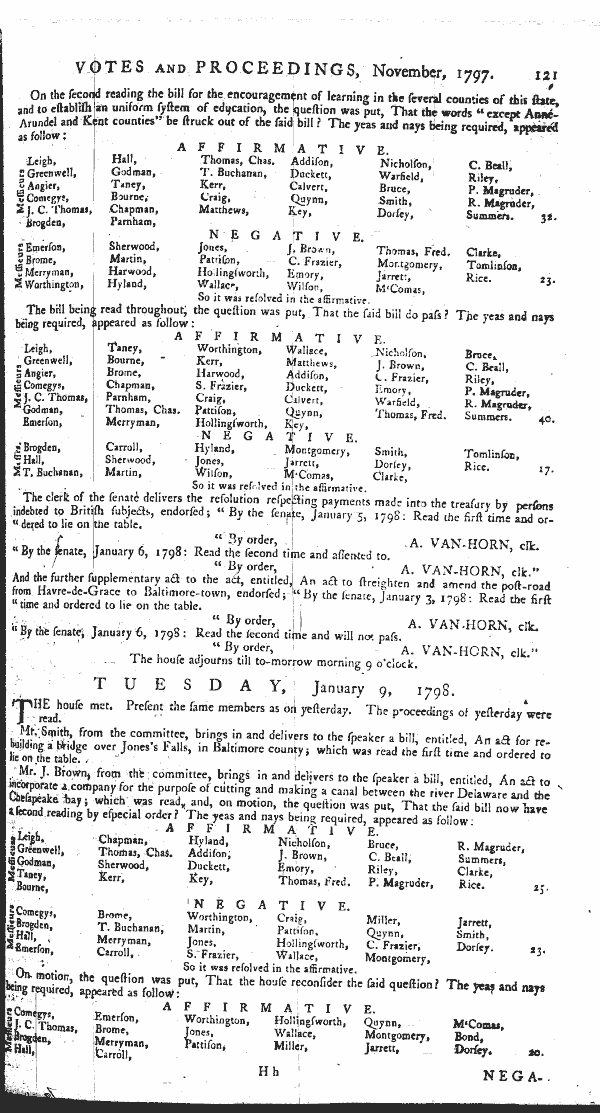 VOTES AND PROCEEDINGS, November, 1797. 121
On the ſecond reading the bill for the encouragement of learning in the ſeveral counties of this ſtate,
and to eſtabliſh an uniform ſyſtem of education, the queſtion was put, That the words "except Anne-
Arundel and Kent counties" be ſtruck out of the ſaid bill? The yeas and nays being required, appeared
as follow:
AFFIRMATIVE.
Meſſieurs
Leigh, Hall, Thomas, Chas. Addiſon, Nicholſon, C. Beall,
Greenwell, Godman, T. Buchanan, Duckett, Warfield, Riley,
Angier, Taney, Kerr, Calvert, Bruce, P. Magruder,
Comegys, Bourne, Craig, Quynn, Smith, R. Magruder,
J. C. Thomas, Chapman, Matthews, Key, Dorſey, Summers. 32.
Brogden, Parnham,
NEGATIVE.
Meſſieurs
Emerſon, Sherwood, Jones, J. Brown, Thomas, Fred. Clarke,
Brome, Martin, Pattiſon, C. Frazier, Montgomery, Tomlinſon,
Merryman, Harwood, Hollingſworth, Emory, Jarrett, Rice. 23.
Worthington, Hyland, Wallace, Wilſon, M'Comas,
So it was reſolved in the affirmative.
The bill being read throughout, the queſtion was put, That the ſaid bill do paſs? The yeas and nays
being required, appeared as follow:
AFFIRMATIVE.
Meſſieurs
Leigh, Taney, Worthington, Wallace, Nicholſon, Bruce,
Greenwell, Bourne, Kerr, Matthews, J. Brown, C. Beall,
Angier, Brome, Harwood, Addiſon, C. Frazier, Riley,
Comegys, Chapman, S. Frazier, Duckett, Emory, P. Magruder,
J. C. Thomas, Parnham, Craig, Calvert, Warfield, R. Magruder,
Godman, Thomas, Chas. Pattiſon, Quynn, Thomas, Fred. Summers. 40.
Emerſon, Merryman, Hollingſworth, Key,
NEGATIVE.
Meſſrs.
Brogden, Carroll, Hyland, Montgomery, Smith, Tomlinſon,
Hall, Sherwood, Jones, Jarrett, Dorſey, Rice. 17.
T. Buchanan, Martin, Wilſon, M'Comas, Clarke,
So it was reſolved in the affirmative.
The clerk of the ſenate delivers the reſolution reſpecting payments made into the treaſury by perſons
indebted to Britiſh ſubjects, endorſed; "By the ſenate, January 5, 1798: Read the firſt time and or-
"dered to lie on the table.
"By order, A. VAN-HORN, clk.
"By the ſenate, January 6, 1798: Read the ſecond time and aſſented to.
"By order, A. VAN-HORN, clk."
And the further ſupplementary act to the act, entitled, An act to ſtreighten and amend the poſt-road
from Havre-de-Grace to Baltimore-town, endorſed; "By the ſenate, January 3, 1798: Read the firſt
"time and ordered to lie on the table.
"By order, A. VAN-HORN, clk.
"By the ſenate, January 6, 1798: Read the ſecond time and will not paſs.
"By order, A. VAN-HORN, clk."
The houſe adjourns till to-morrow morning 9 o'clock.
TUESDAY, January 9, 1798.
THE houſe met. Preſent the ſame members as on yeſterday. The proceedings of yeſterday were
read.
Mr. Smith, from the committee, brings in and delivers to the ſpeaker a bill, entitled, An act for re-
building a bridge over Jones's Falls, in Baltimore county; which was read the firſt time and ordered to
lie on the table.
Mr. J. Brown, from the committee, brings in and delivers to the ſpeaker a bill, entitled, An act to
incorporate a company for the purpoſe of cutting and making a canal between the river Delaware and the
Cheſapeake bay; which was read, and, on motion, the queſtion was put, That the ſaid bill now have
a ſecond reading by eſpecial order? The yeas and nays being required, appeared as follow:
AFFIRMATIVE.
Meſſieurs
Leigh, Chapman, Hyland, Nicholſon, Bruce, R. Magruder,
Greenwell, Thomas, Chas. Addiſon, J. Brown, C. Beall, Summers,
Godman, Sherwood, Duckett, Emory, Riley, Clarke,
Taney, Kerr, Key, Thomas, Fred. P. Magruder, Rice. 25.
Bourne,
NEGATIVE.
Meſſieurs
Comegys, Brome, Worthington, Craig, Miller, Jarrett,
Brogden, T. Buchanan, Martin, Pattiſon, Quynn, Smith,
Hall, Merryman, Jones, Hollingſworth, C. Frazier, Dorſey. 23.
Emerſon, Carroll, S. Frazier, Wallace, Montgomery,
So it was reſolved in the affirmative.
On motion, the queſtion was put, That the houſe reconſider the ſaid queſtion? The yeas and nays
being required, appeared as follow:
AFFIRMATIVE.
Meſſieurs
Comegys, Emerſon, Worthington, Hollingſworth, Quynn, M'Comas,
J. C. Thomas, Brome, Jones, Wallace, Montgomery, Bond,
Brogden, Merryman, Pattiſon, Miller, Jarrett, Dorſey. 20.
Hall, Carroll,
H h NEGA-